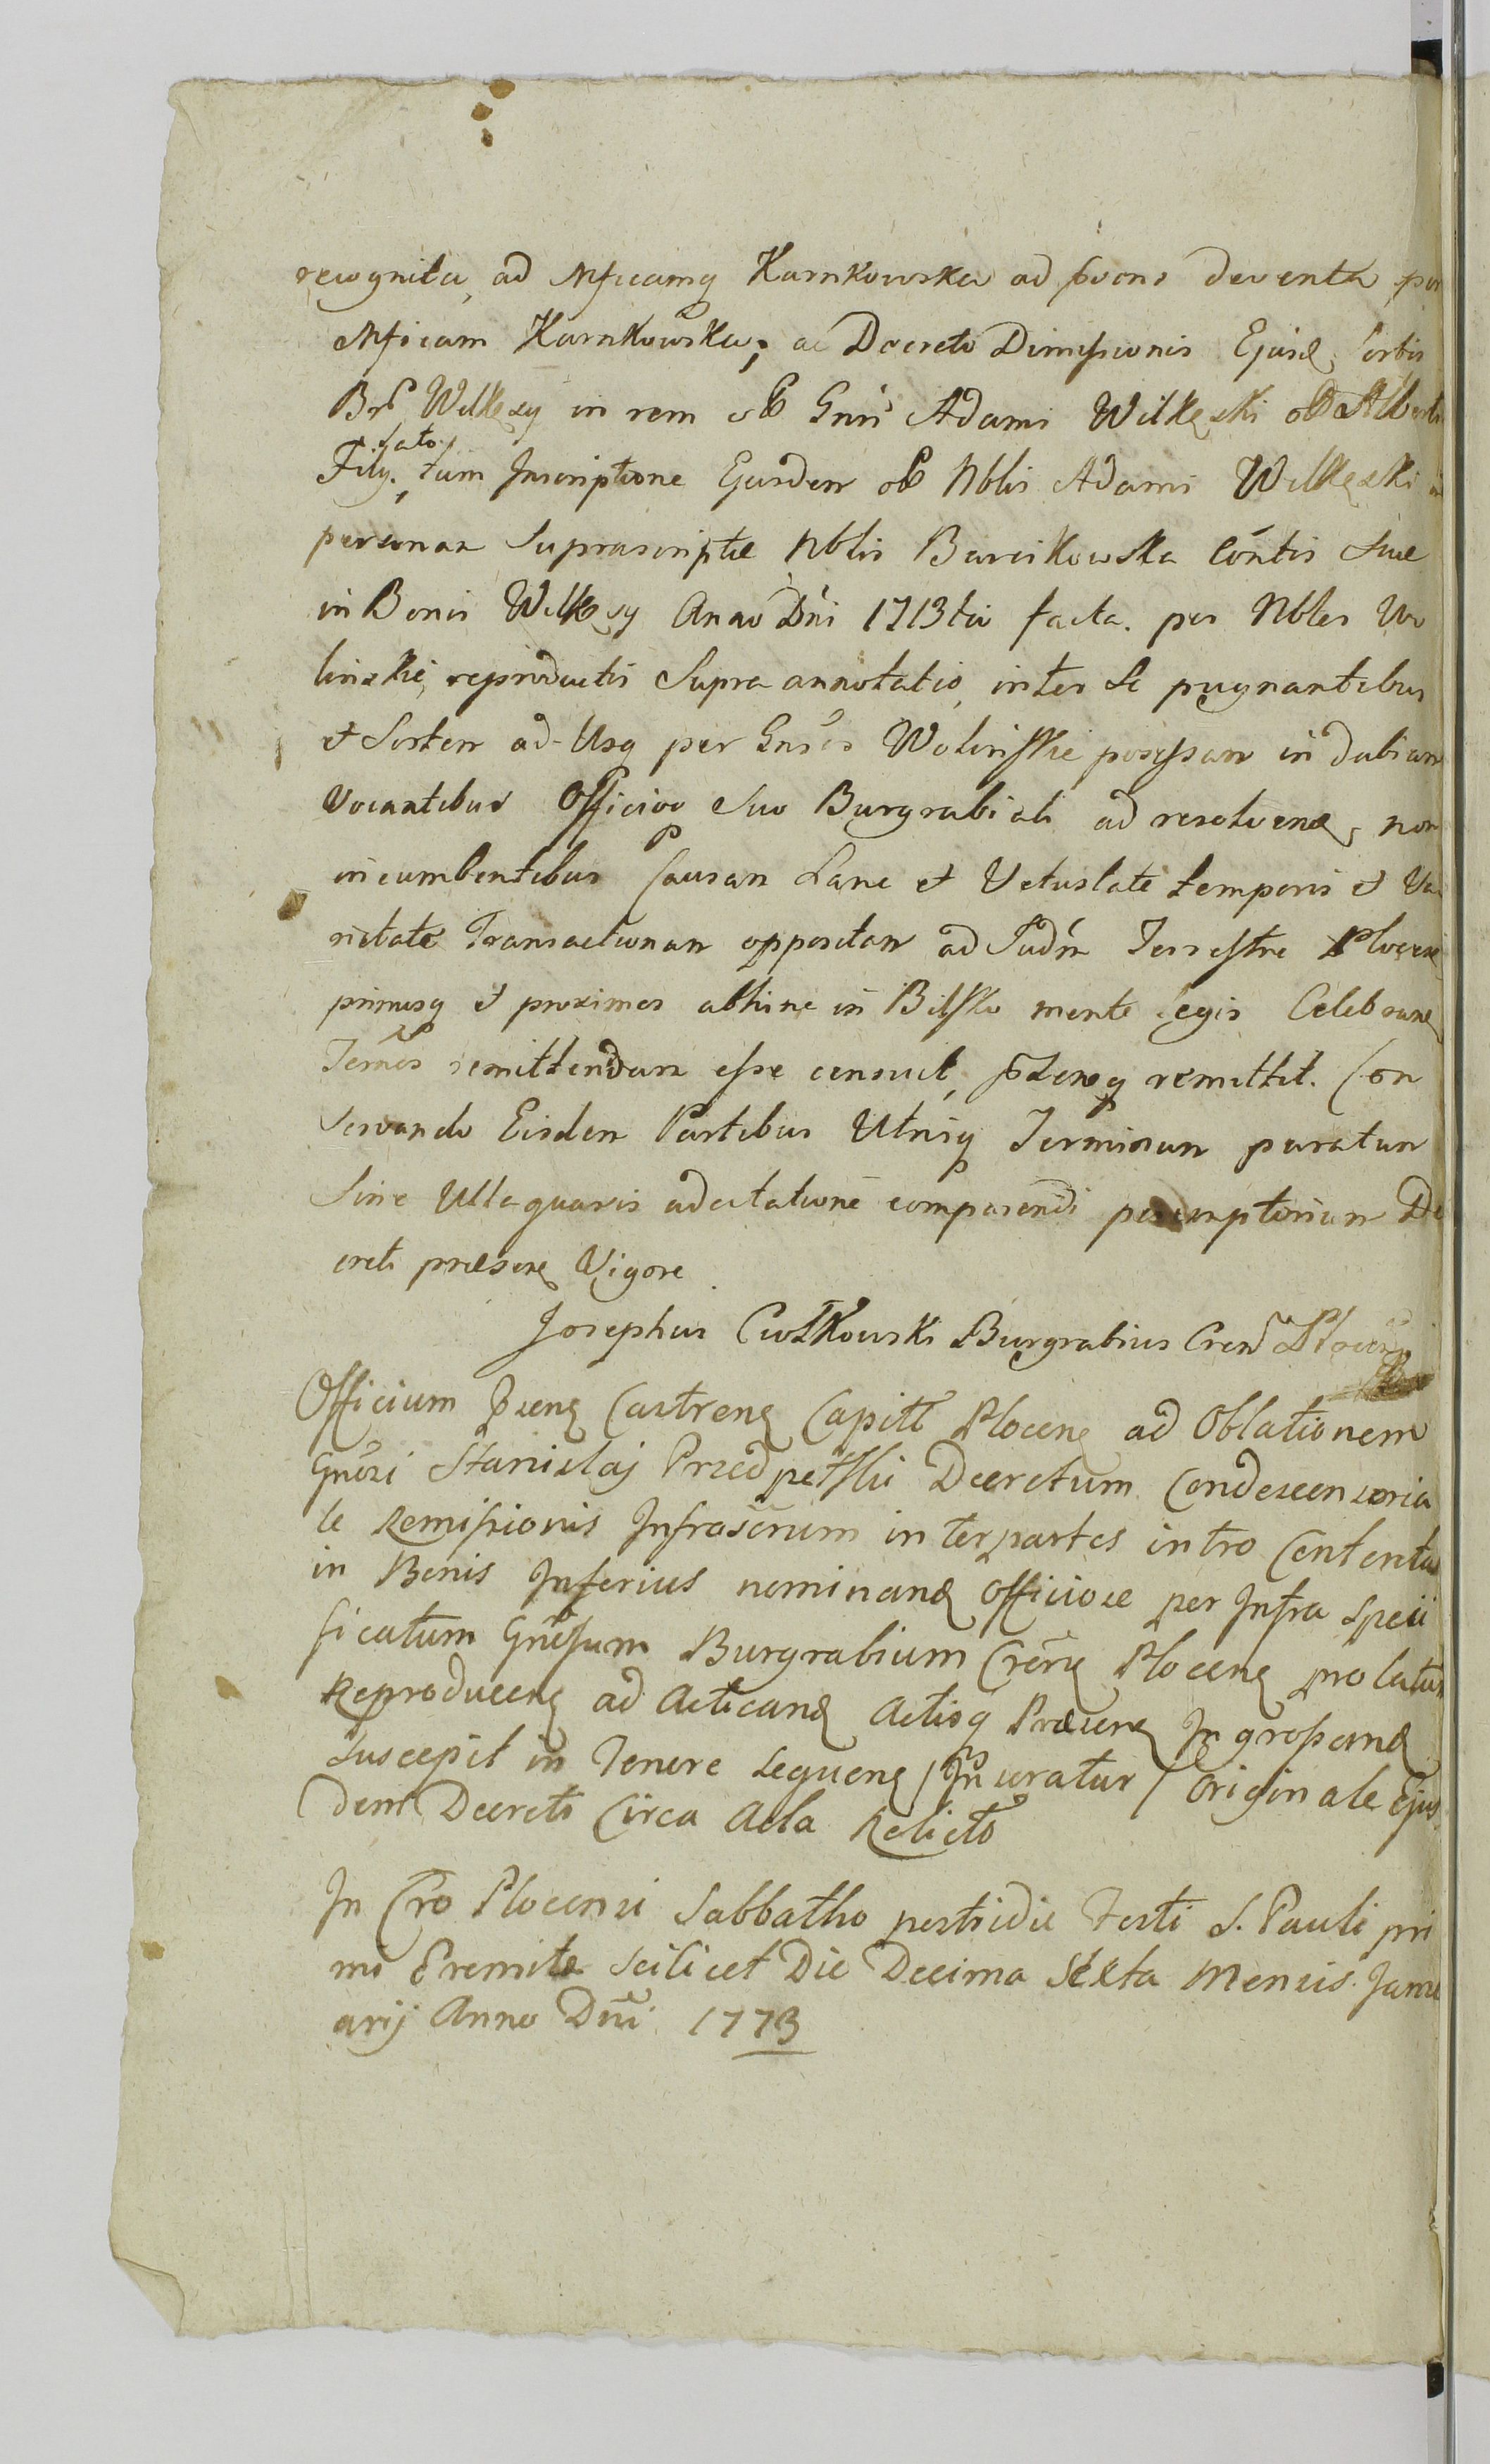 recognita, ad Mficamq Karnkowska ad pñons deventa per
Mficam Karnkowska; ac Decreto Dimissionis Ejusd. Sortis
Wilkęsy in rem ol. Gnri Adami Wilkęski ol. Alberti
Filij. lato. tum Inscriptione Ejusdem ol. Nblis Adami Wilkęski in
personam Suprascriptæ Nblis Barcikowska Contis Suæ
in Bonis Wilkęsy Anno Dñi 1713tio facta. per Nbles Wo
linskie, reproductis Supra annotatis, inter Se pugnantibus
et Sortem ad-Usq per Gnsos Wolinskie possessam in dubium
Vocantibus Officioq Suo Burgrabiali ad resolvend, non
incumbentibus Causam Sane et Vetustate temporis et Va
rietate Transactionum oppositam ad Judm Terrestre Plocense
primosq et proximos abhinc in Bilsko mente legis Celebrand
Termos remittendam esse censuit, remittit. Con
servando Eisdem Partibus Utrisq Terminum paratum
Sine Ulla quavis adcitatione comparendi peremptorium De
creti præsen Vigore
Josephus Ciołkowski Burgrabius Cren Plocen
Officium Præsens Castrense Capitt Plocens ad Oblationem
Gnosi Stanislaj Przedpełski Decretum Condescensoria
le Remissionis Infrascrum inter partes intro Contentas
in Bonis Inferius nominand Officiose per Infra Speci
ficatum Gnosum Burgrabium Crens Plocens prolatum
Reproducens ad Acticand Actisq Præsens Ingrossand
Suscepit in Tenore sequens / Inseratur / Originale Ejus
dem Decreti Circa Acta Relicto
In Cro Plocensi Sabbatho postridie Festi S. Pauli pri
mi Eremitæ scilicet Die Decima Sexta Mensis Janu
arij Anno Dni 1773